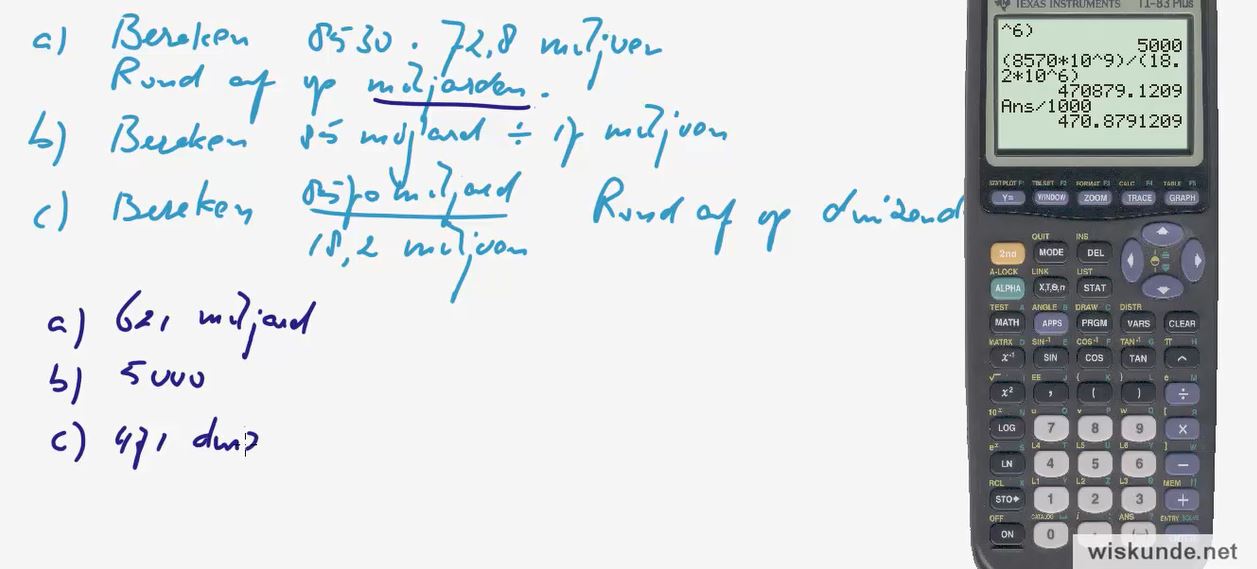 a) Bereken 8530 · 72,8 miljoen
Rond af op miljarden.
b) Bereken 85 miljard ÷ 17 miljoen
c) Bereken 8570 miljard Rond af op duizend
18,2 miljoen
a) 621 miljard
b) 5000
c) 471 duiz
TEXAS INSTRUMENTS TI-83 Plus
^6)
5000
(8570*10^9)/(18.
2*10^6)
470879.1209
Ans/1000
470.8791209
STAT PLOT F1 TBLSET F2 FORMAT F3 CALC F4 TABLE F5
Y= WINDOW ZOOM TRACE GRAPH
QUIT INS
2nd MODE DEL
A-LOCK LINK LIST
ALPHA X,T,Θ,n STAT
TEST A ANGLE B DRAW C DISTR
MATH APPS PRGM VARS CLEAR
MATRX D SIN⁻¹ E COS⁻¹ F TAN⁻¹ G π H
x⁻¹ SIN COS TAN ^
√ I EE J { K } L e M
x² , ( ) ÷
10ˣ N u O v P w Q [ R
LOG 7 8 9 ×
eˣ S L4 T L5 U L6 V ] W
LN 4 5 6 −
RCL X L1 Y L2 Z L3 θ MEM "
STO▸ 1 2 3 +
OFF CATALOG i : ANS ? ENTRY SOLVE
ON 0
wiskunde.net